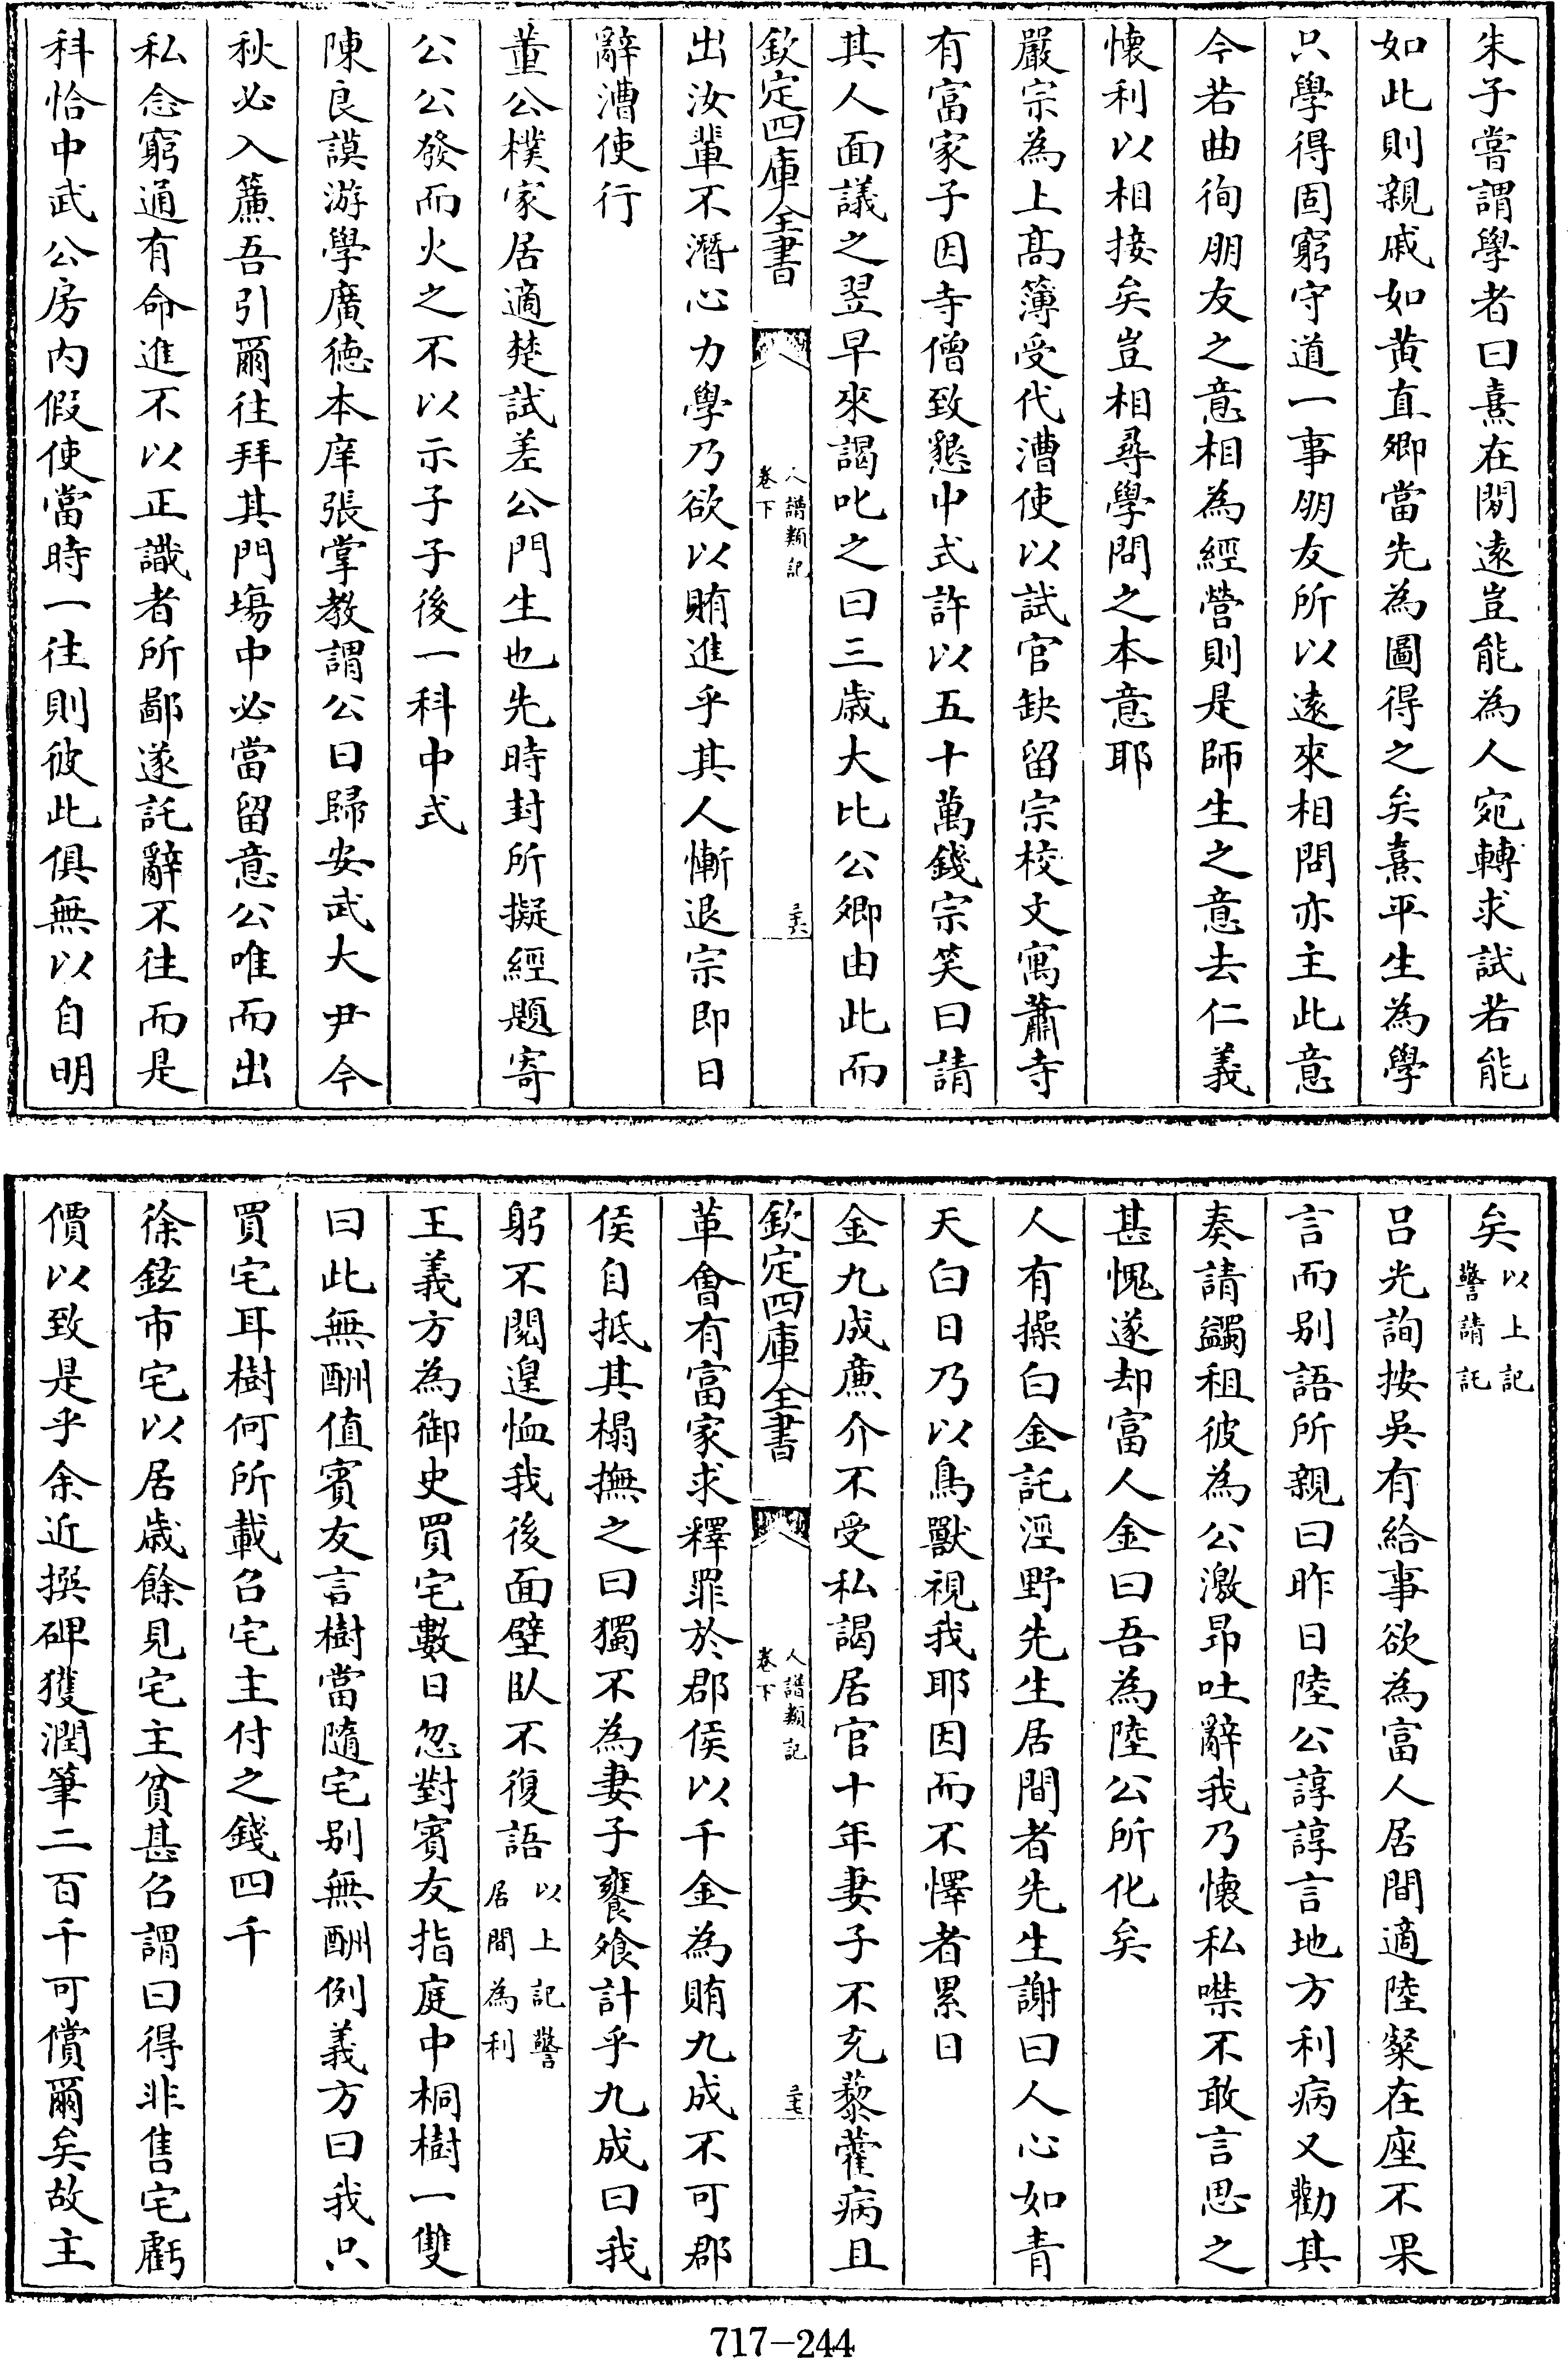 朱子嘗謂學者曰熹在閒遠豈能為人宛轉求試若能
如此則親戚如黄直卿當先為圖得之矣熹平生為學
只學得固窮守道一事朋友所以逺來相問亦主此意
今若曲徇朋友之意相為經營則是師生之意去仁義
懐利以相接矣豈相尋學問之本意耶
嚴宗為上高簿受代漕使以試官缺留宗校文寓蕭寺
有富家子因寺僧致懇中式許以五十萬錢宗笑曰請
其人面議之翌早來謁叱之曰三歳大比公卿由此而
欽定四庫全書
人譜類記
卷下
三六
出汝輩不潛心力學乃欲以賄進乎其人慚退宗即日
辭漕使行
董公樸家居適楚試差公門生也先時封所擬經題寄
公公發而火之不以示子子後一科中式
陳良謨游學廣徳本庠張掌教謂公曰歸安武大尹今
秋必入簾吾引爾往拜其門塲中必當留意公唯而出
私念窮通有命進不以正識者所鄙遂託辭不往而是
科恰中武公房内假使當時一往則彼此俱無以自明
矣以上記
警請託
吕光詢按吳有給事欲為富人居間適陸粲在座不果
言而别語所親曰昨日陸公諄諄言地方利病又勸其
奏請蠲租彼為公激昂吐辭我乃懐私噤不敢言思之
甚愧遂却富人金曰吾為陸公所化矣
人有操白金託涇野先生居間者先生謝曰人心如青
天白日乃以鳥獸視我耶因而不懌者累日
金九成亷介不受私謁居官十年妻子不充藜藿病且
欽定四庫全書
人譜類記
卷下
三七
革會有富家求釋罪於郡侯以千金為賄九成不可郡
侯自抵其榻撫之曰獨不為妻子饔飧計乎九成曰我
躬不閱遑恤我後面壁臥不復語以上記警
居間為利
王義方為御史買宅數日忽對賓友指庭中桐樹一雙
曰此無酬值賓友言樹當隨宅别無酬例義方曰我只
買宅耳樹何所載召宅主付之錢四千
徐鉉市宅以居歳餘見宅主貧甚召謂曰得非售宅虧
價以致是乎余近撰碑獲潤筆二百千可償爾矣故主
717-244